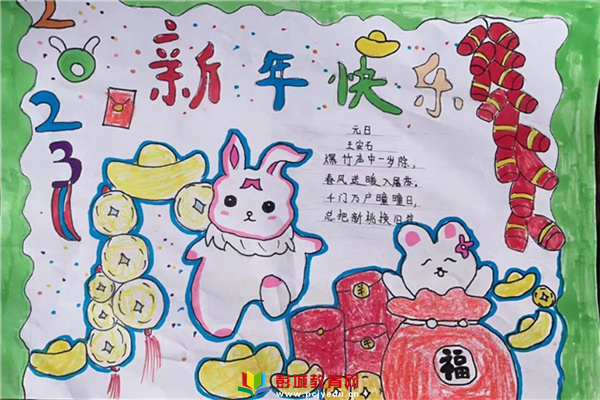 2023
新年快乐
元日
王安石
爆竹声中一岁除，
春风送暖入屠苏。
千门万户曈曈日，
总把新桃换旧符
福
彭城教育网
www.pcjyedu.cn